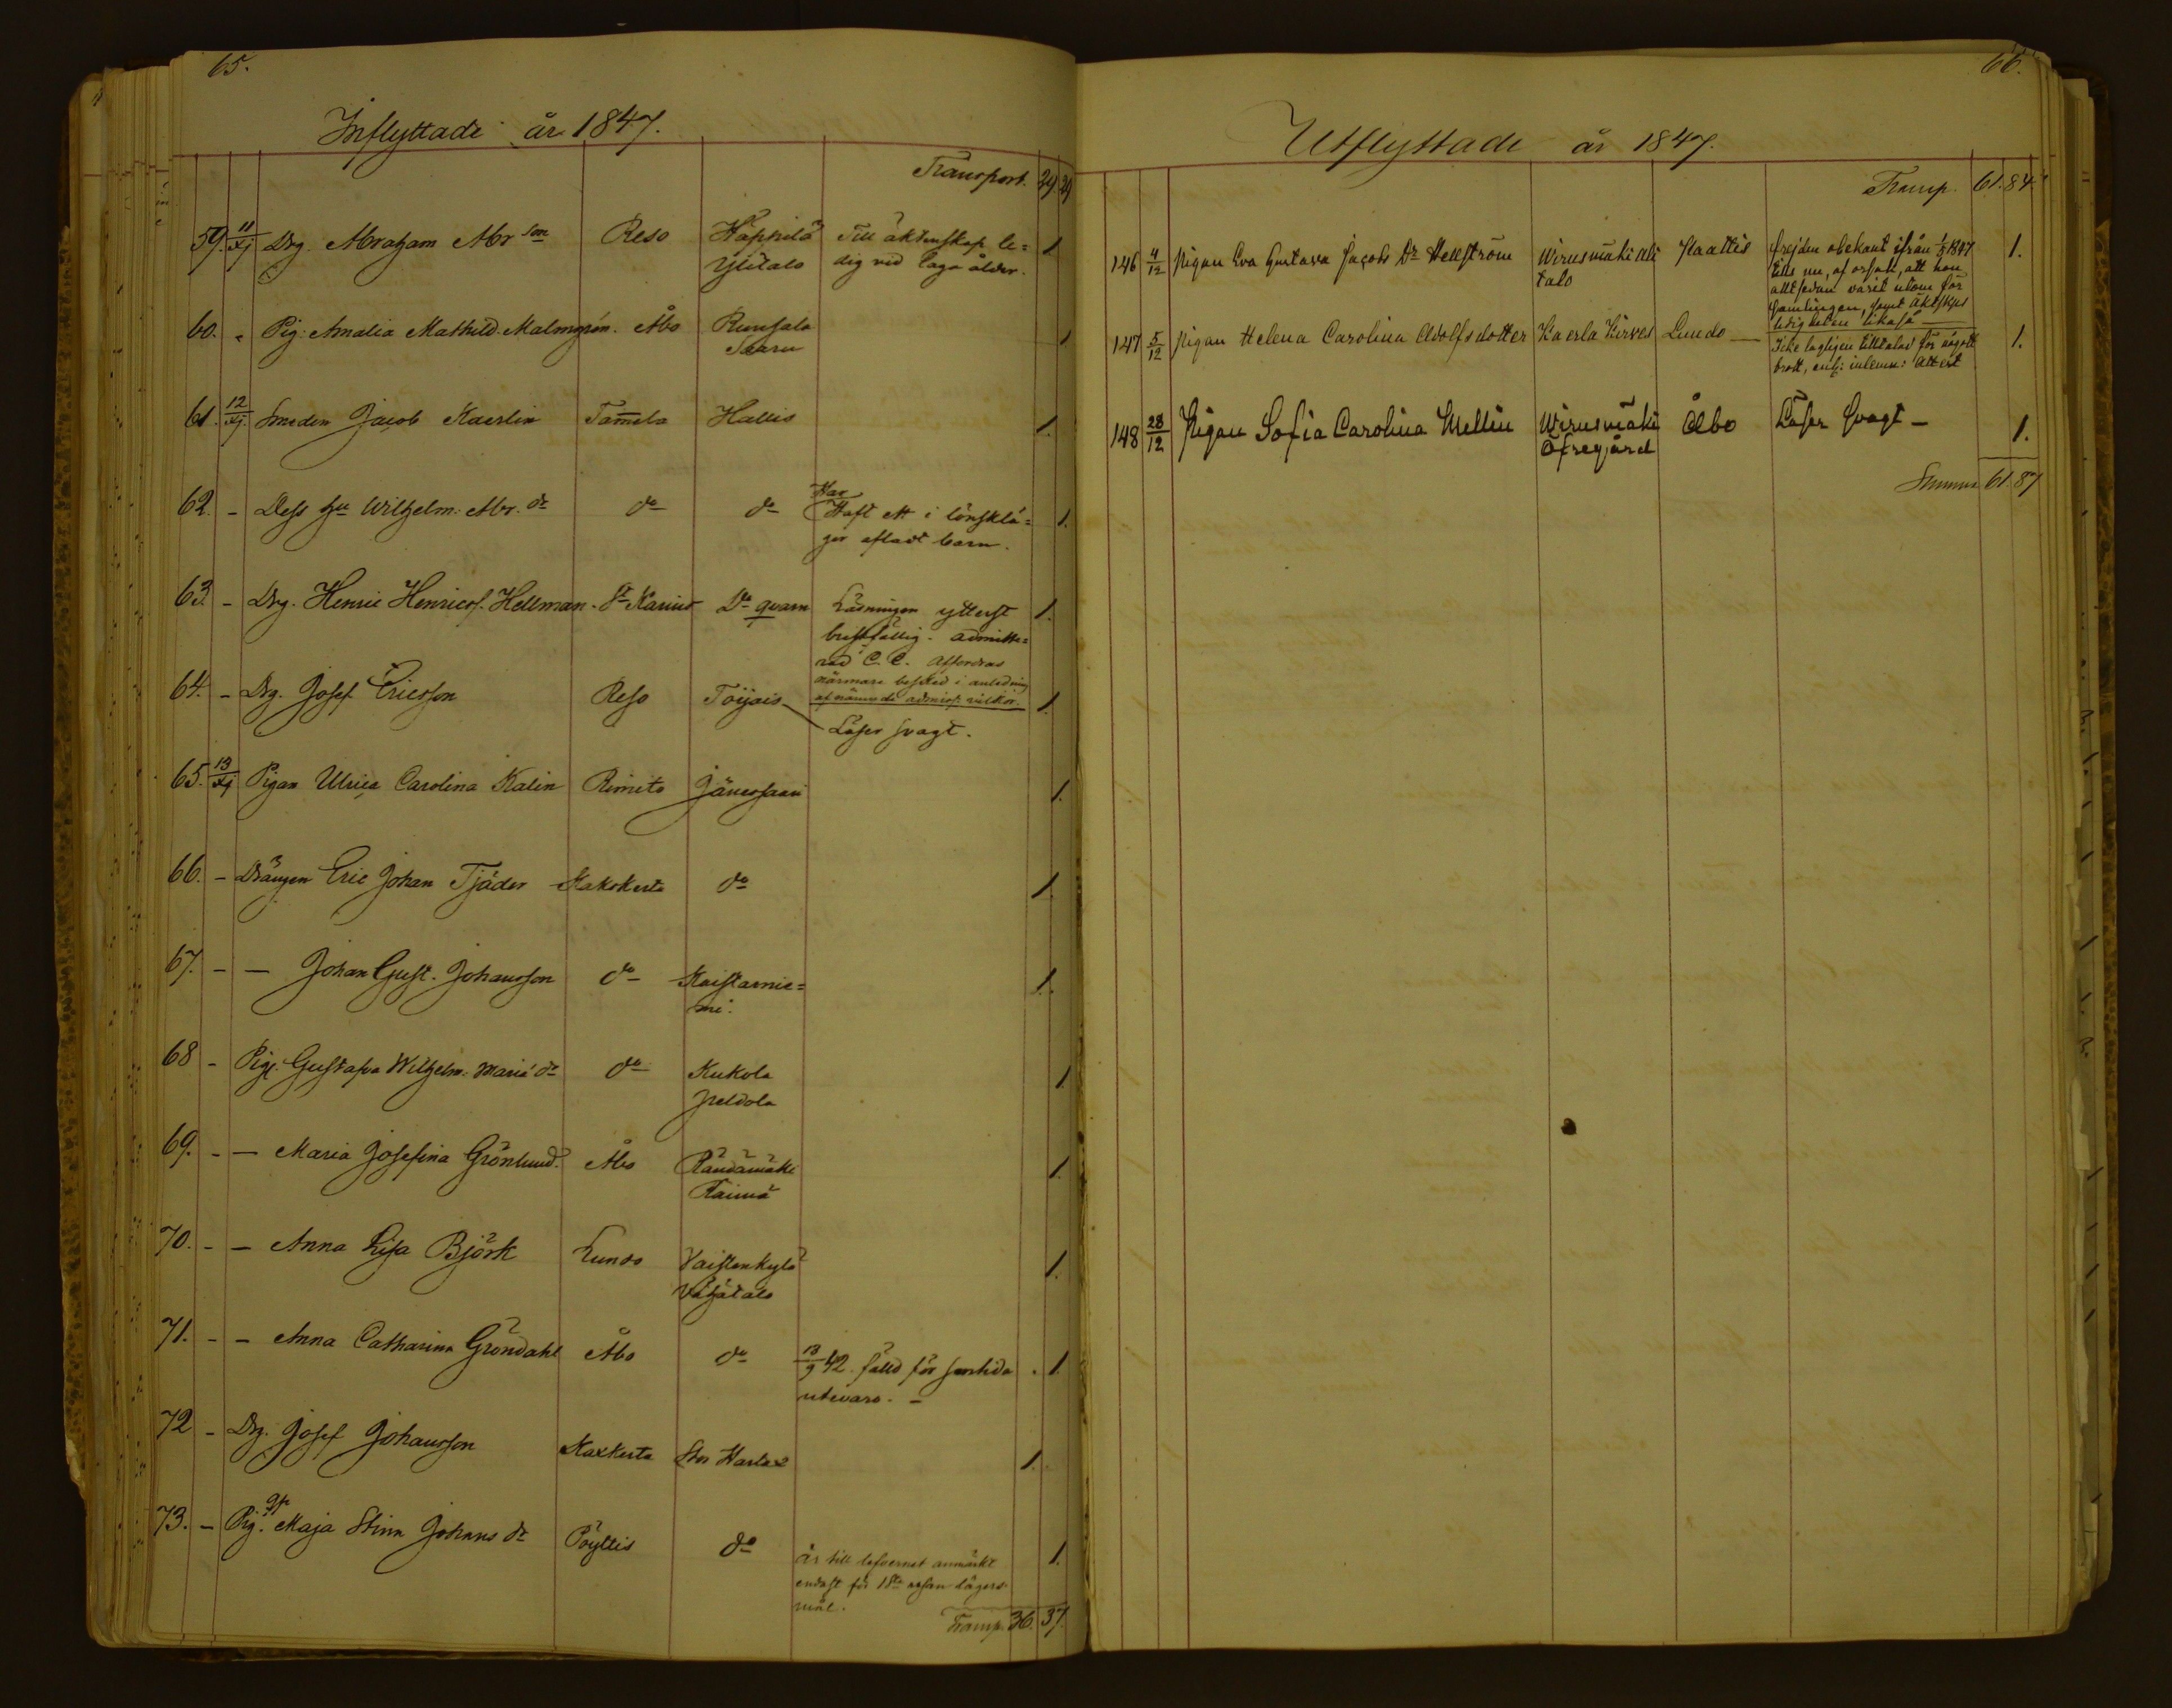 65.
Inflyttade år 1847.
Transport. 29 29
59. 11/xj Drg. Abraham Abr son Reso Häppilä Ylitalo Till äktenskap le=
dig vid laga ålder. 1
60. " Pig. Amalia Mathild. Malmgrén. Åbo Runsala
Saaru 1
61. 12/xj. Smeden Jacob Kaerlin Tam̄ela Hallis 1.
62. - Dess hu Wilhelm. Abr. dr do do Har
Haft ett i lönsklä=
ger afladt barn. 1.
63. - Drg. Henric Henrics. Hellman. St Karins Do qvarn Läsningen ytterst
bristfällig. admitte=
rad C. C. Affordras
närmare besked i anledning
af nämnde admiss. vilkor. 1.
64. - Drg. Josef Ericsson Reso Toijais Läser svagt. 1.
65. 13/xj Pigan Ulrica Carolina Kalin Rimito Jänessaari 1.
66. - Drängen Eric Johan Tjäder Kakskerta do 1.
67. - - Johan Gust. Johansson do Kaistarnie=
mi. 1.
68 - Pig. Gustafva Wilhelm. Maria dr do Kukola
Peldola 1
69. - - Maria Josefina Grönlund. Åbo Rändämäki
Raimä 1.
70. - - Anna Lisa Björk Lundo Vaistenkylä
Vähätalo 1.
71. - - Anna Catharina Gröndahl Åbo do 13/9 42. fälld för
utevaro. - 1.
72 - Drg. Josef Johansson Kaxkerta Stor Harlax 1.
73. - Pig. Maja Stina Johans dr Pöyttis do är till lefvernet anmärkt
endast för 1sta lägers=
mål. 1.
Transp. 36. 37.
66.
Utflyttade år 1847.
Transp. 61. 84.
146 4/12 Pigan Eva Gustava Jacobs Dr Hellström Wirusmäki Ali
talo Plaattis frejden obekant ifrån 1/5 1847
tills nu, af orsak, att hon
allt sedan varit utom för
samlingen, samt äktskps
ledigheten likaså 1.
147 5/12 Pigan Helena Carolina Adolfsdotter Kaerla Kirves Lundo Icke lagligen tilltalad för något
brott, enl: inlemn: attest 1.
148 28/12 Pigan Sofia Carolina Mellin Wirusmäki
Öfregård Åbo Läser svagt - 1.
Summa 61. 87